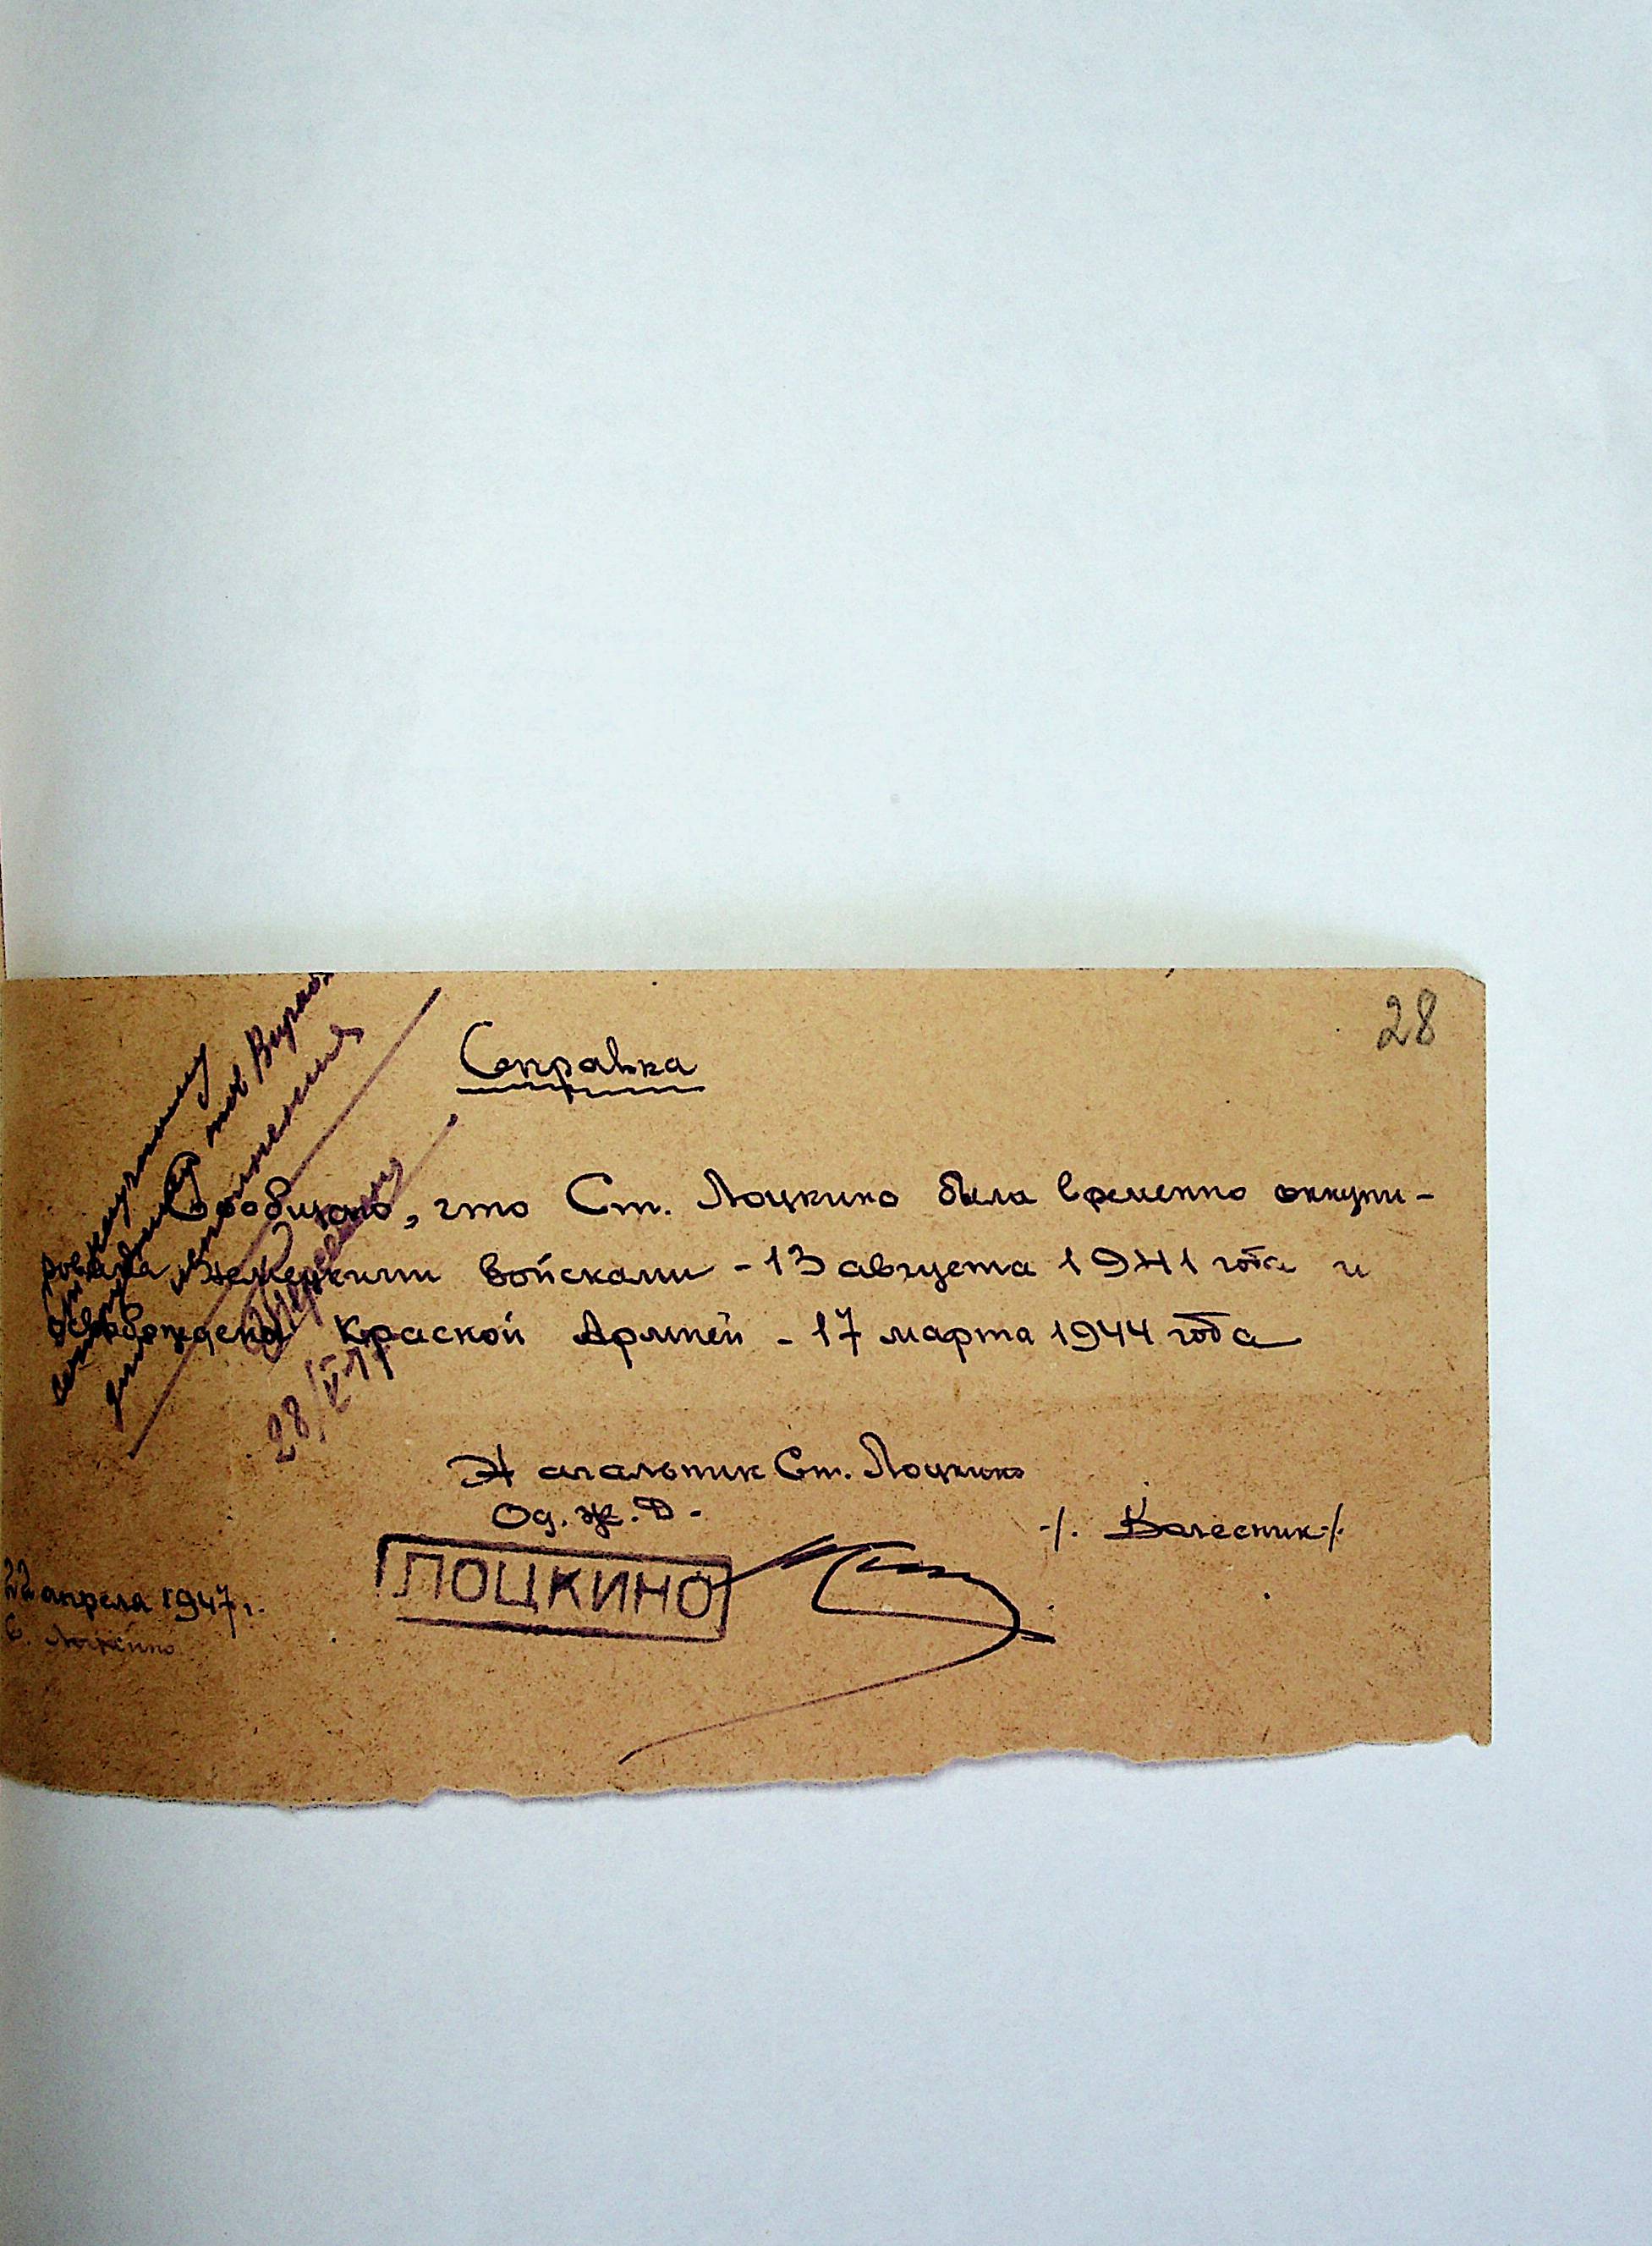 28
Справка
Сообщаю, что Ст. Лоцкино была временно оккупи-
рована Немецкими войсками - 13 августа 1941 года и
освобождена Краской Армией - 17 марта 1944 года
Начальник Ст. Лоцкино
Од. Ж. Д.
-/. Колесник /-
ЛОЦКИНО
22 апреля 1947 г.
С. Лоцкино
Ст
тов
28/V-47